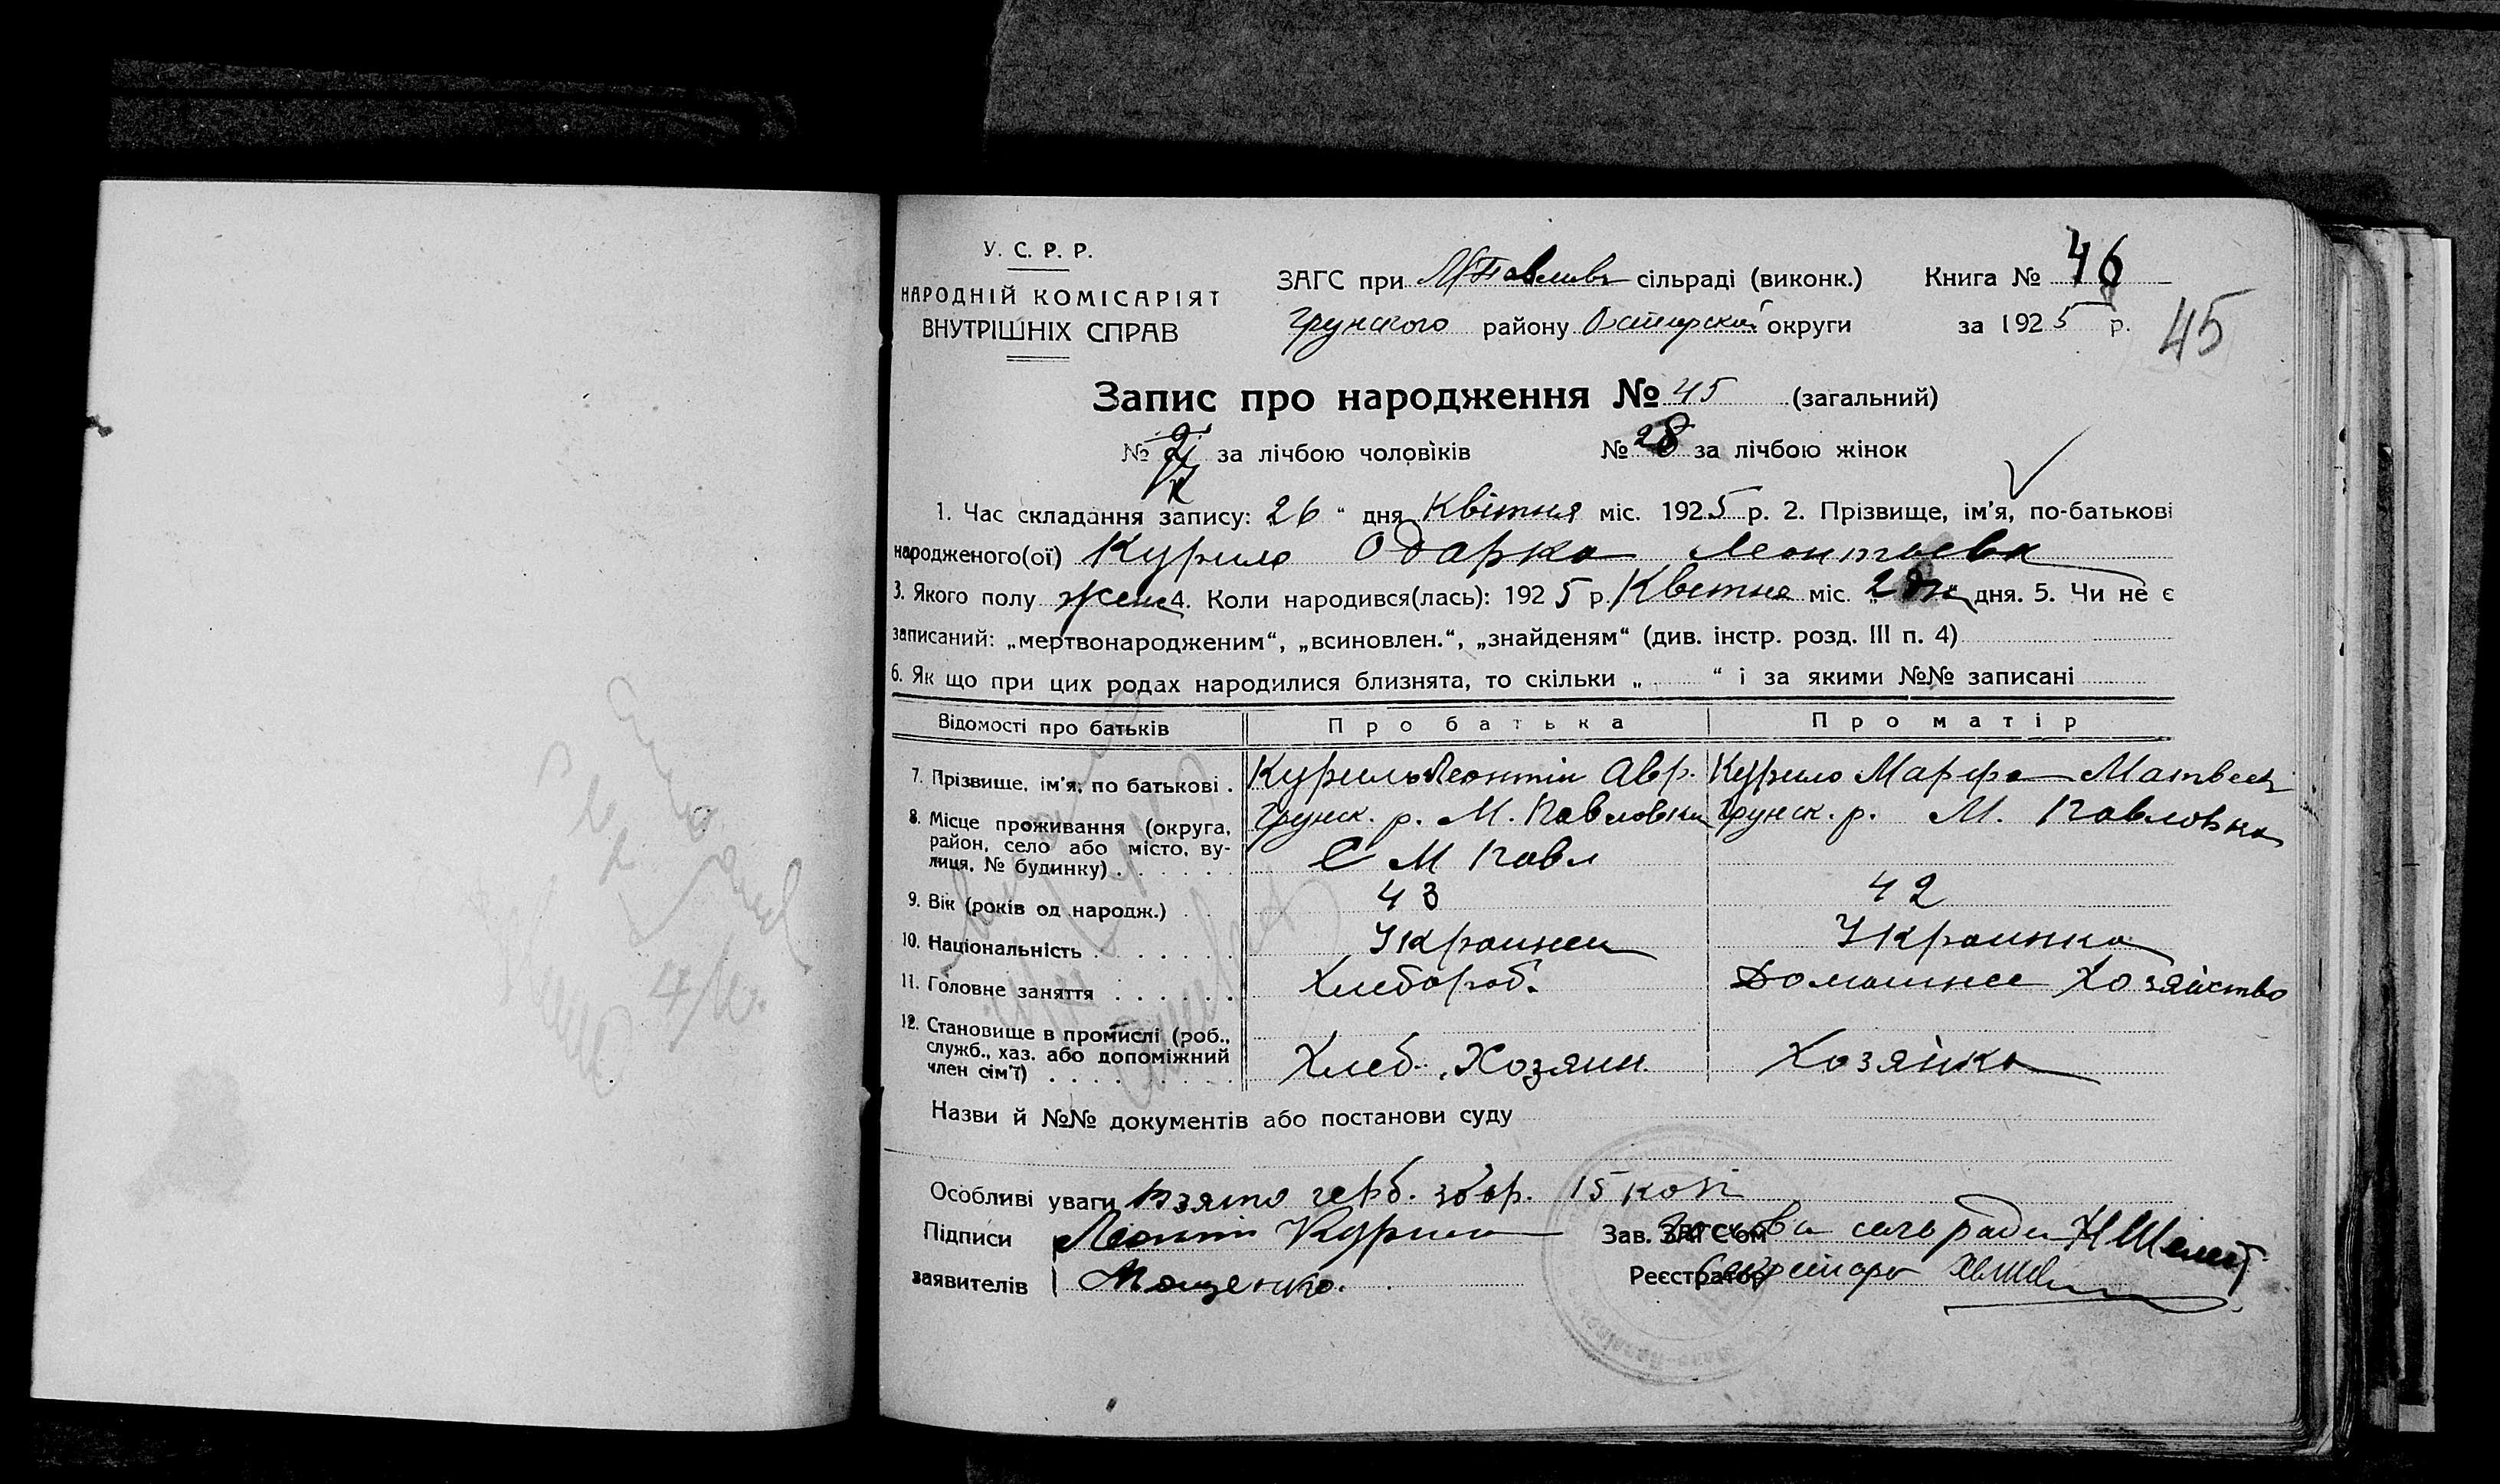 У. С. Р. Р.
НАРОДНІЙ КОМІСАРІЯТ
ВНУТРІШНІХ СПРАВ
ЗАГС при М Павливс сільраді (виконк.) Книга № 46
Грунского району Охтирской округи за 1925 р. 45
Запис про народження № 45 (загальний)
№ за лічбою чоловіків № 28 за лічбою жінок
1. Час складання запису: 26 " дня Квітня міс. 1925 р. 2. Прізвище, ім'я, по-батькові
народженого(ої) Курило Одарка Леонтьевн
3. Якого полу жен 4. Коли народився(лась): 1925 р. Квітня міс. " дня. 5. Чи не є
записаний: „мертвонародженим“, „всиновлен.“, „знайденям“ (див. інстр. розд. III п. 4)
6. Як що при цих родах народилися близнята, то скільки „ “ і за якими №№ записані
Відомості про батьків Про батька Про матір
7. Прізвище, ім'я, по батькові . Курило Леонтій Авр. Курило Марфа Матвеев
8. Місце проживання (округа, район, село або місто, вулиця, № будинку) . . . . . . Грунск. р. М. Павловки Грунск. р. М. Павловка
С М Павл
9. Вік (років од народж.) . . 43 42
10. Національність . . . . . . . Украинец Украинка
11. Головне заняття . . . . . . Хлебороб. Домашнее Хозяйство
12. Становище в промислі (роб., служб., хаз. або допоміжний член сім'ї) . . . . . . . . Хлеб. Хозяин. Хозяйка
Назви й №№ документів або постанови суду
Особливі уваги Взято герб. збор. 15 коп
Підписи Леонтій Курило Зав. ЗАГС'ом Голова сельради Н Шелест
заявителів Мащенко. Реєстратор Секретарь